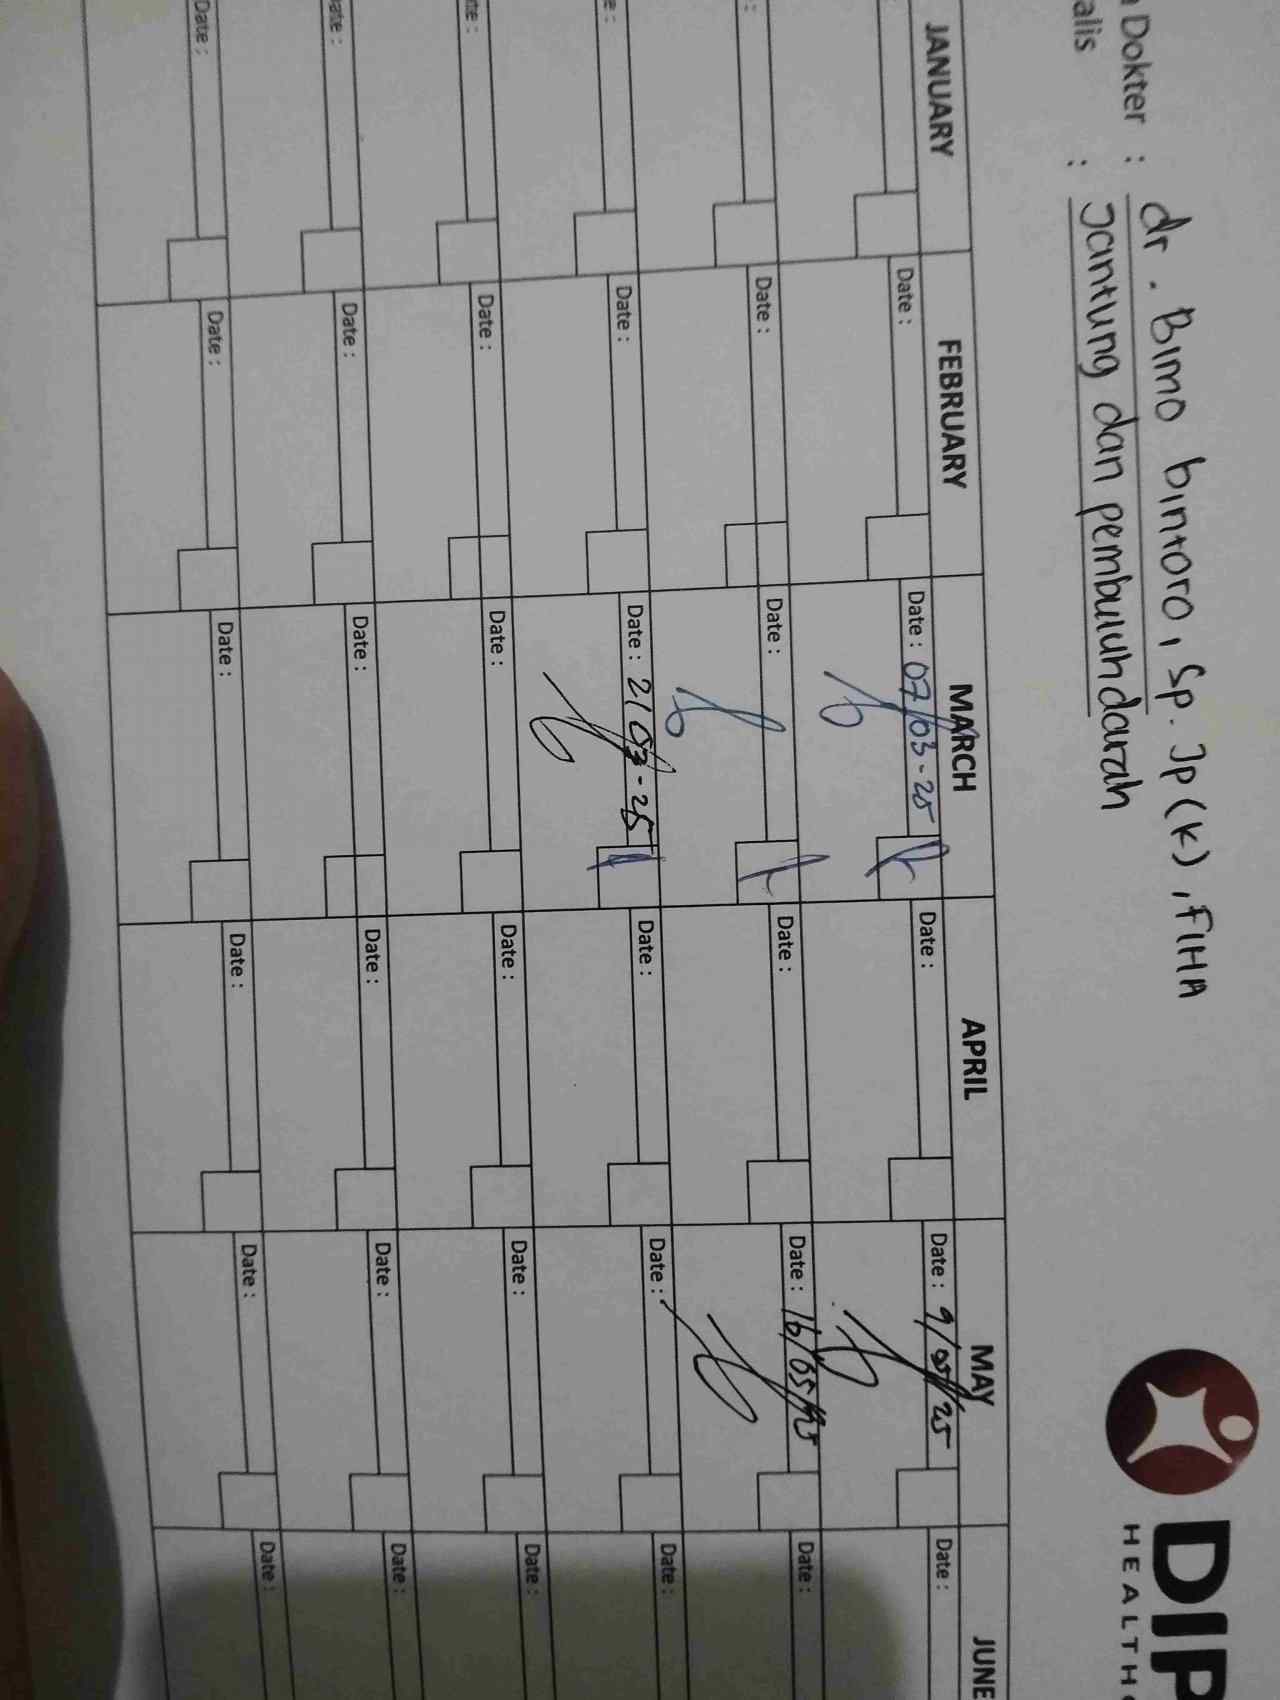 DIP
HEALTH
Dokter : dr. Bimo bintoro, Sp. Jp (K), FIHA
alis : Jantung dan pembuluh darah
JANUARY FEBRUARY MARCH APRIL MAY JUNE
Date : Date : 07/03-25 Date : Date : 9/05/25 Date :
: Date : Date : Date : Date : 16/05/25 Date :
e : Date : Date : 21/03-25 Date : Date : Date :
te : Date : Date : Date : Date : Date :
ate : Date : Date : Date : Date : Date :
Date : Date : Date : Date : Date : Date :